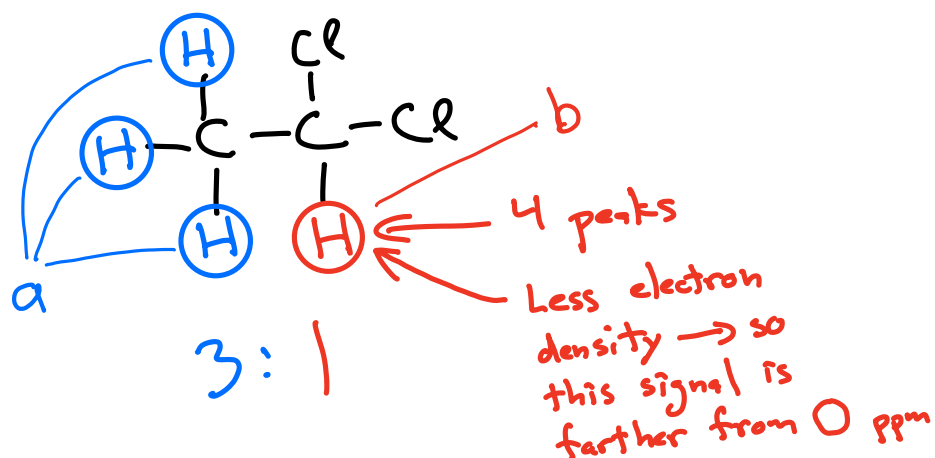 H Cl
H C C Cl b
H H 4 peaks
a Less electron
density → so
3:1 this signal is
farther from 0 ppm